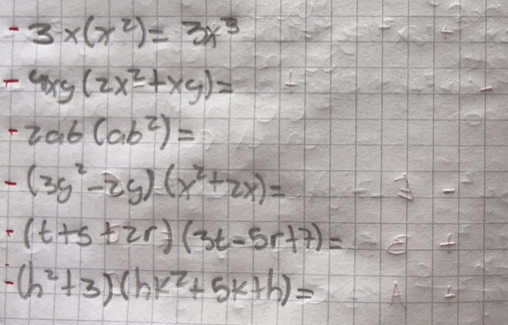 - 3x(x²) = 3x³
- 4xy(2x²+xy)=
- 2ab(ab²)=
- (3y²-2y)(x²+2x)=
- (t+5+2r)(3t-5r+7)=
- (h²+3)(hk²+5k+h)=